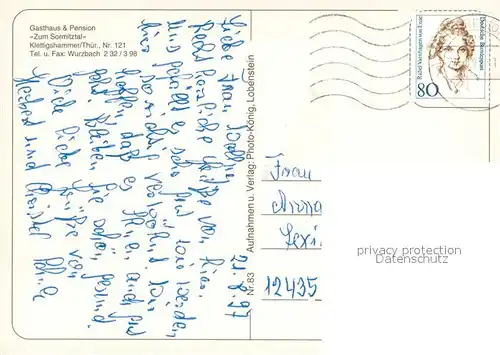 Gasthaus & Pension
»Zum Sormitztal«
Klettigshammer/Thür., Nr. 121
Tel. u. Fax: Wurzbach 2 32 / 3 98
Liebe Frau
Herzliche Grüße von hier.
Uns gefällt es sehr gut, wir werden
hier so richtig verwöhnt. Wir
hoffen, daß es Ihnen auch gut
geht. Bleiben Sie schön gesund.
Viele liebe Grüße von
Herbert und
21.8.97
Nr. 83
Aufnahmen u. Verlag: Photo-König, Lobenstein
Deutsche Bundespost
Rahel Varnhagen von Ense
80
Frau
Anna
12435
privacy protection
Datenschutz